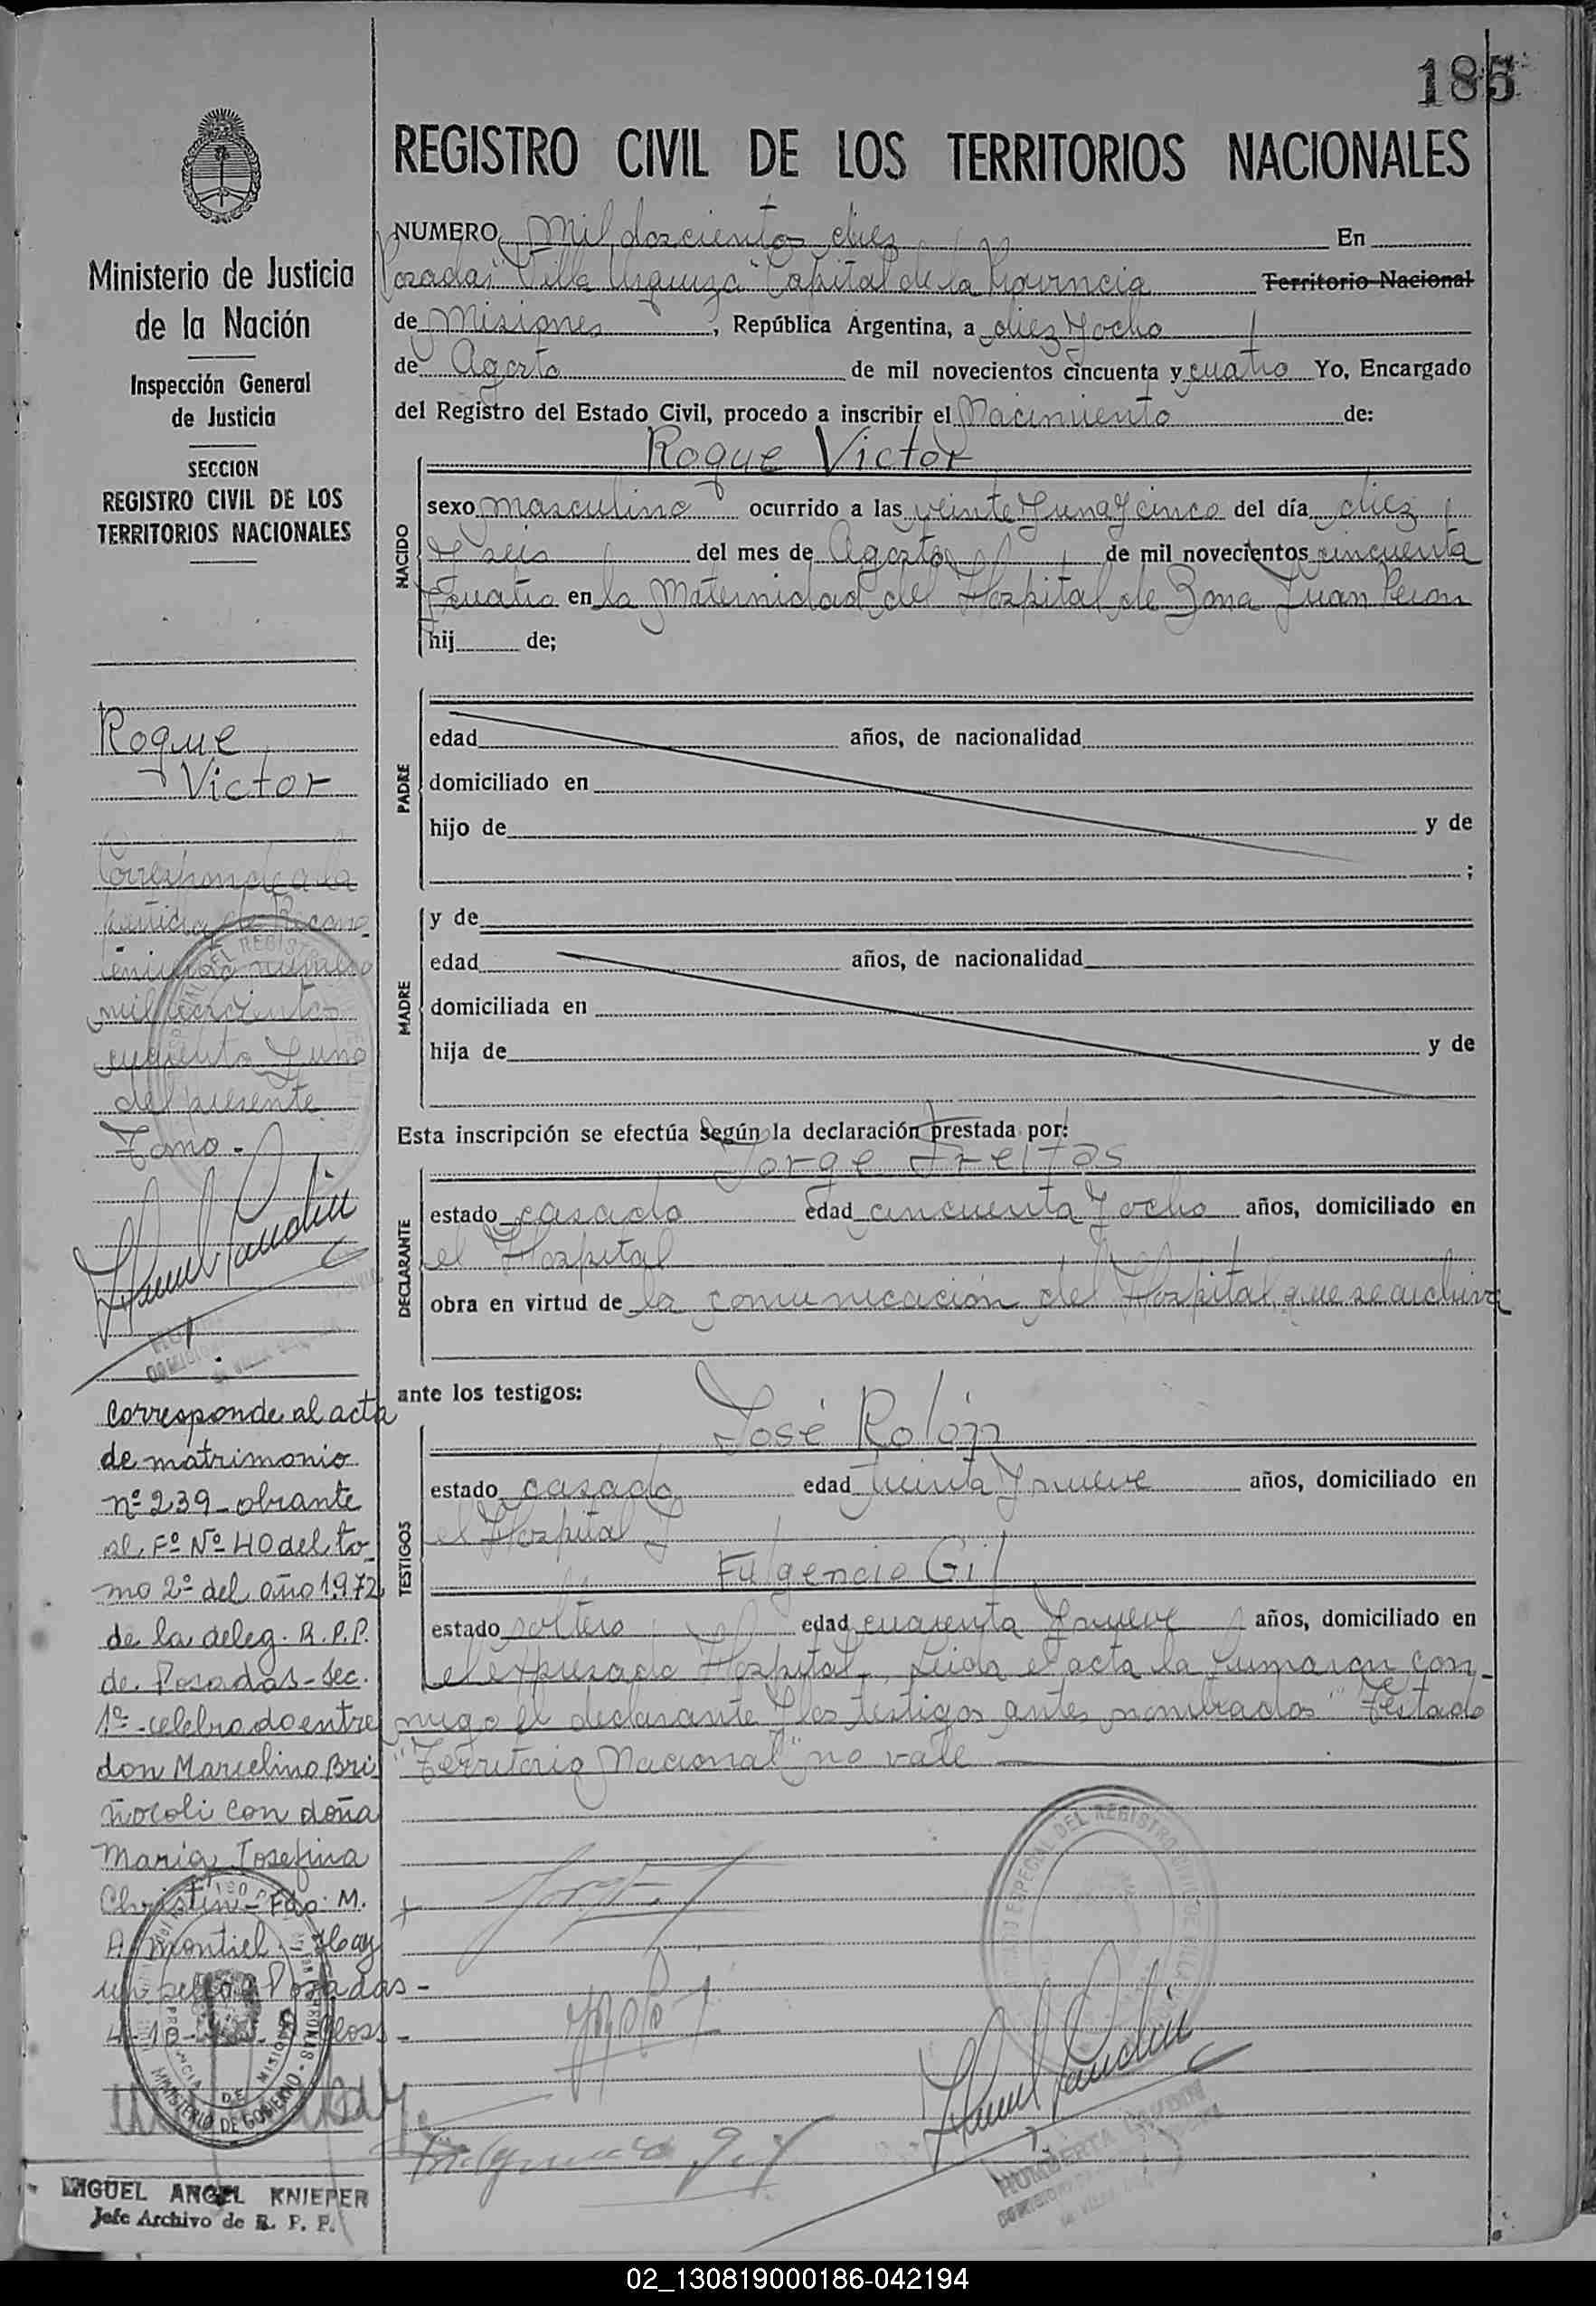 185
REGISTRO CIVIL DE LOS TERRITORIOS NACIONALES
Ministerio de Justicia
de la Nación
Inspección General
de Justicia
SECCION
REGISTRO CIVIL DE LOS
TERRITORIOS NACIONALES
NUMERO Mil doscientos diez En
Posadas "Villa Urquiza" Capital de la Provincia Territorio Nacional
de Misiones, República Argentina, a diez y ocho
de Agosto de mil novecientos cincuenta y cuatro Yo, Encargado
del Registro del Estado Civil, procedo a inscribir el Nacimiento de:
Roque Victor
NACIDO
sexo masculino ocurrido a las veinte y una y cinco del día diez
y seis del mes de Agosto de mil novecientos cincuenta
y cuatro en la Maternidad del Hospital de Zona Juan Peron
hij de;
PADRE
edad años, de nacionalidad
domiciliado en
hijo de y de
;
MADRE
y de
edad años, de nacionalidad
domiciliada en
hija de y de
Esta inscripción se efectúa según la declaración prestada por:
Jorge Freitas
DECLARANTE
estado casado edad cincuenta y ocho años, domiciliado en
el Hospital
obra en virtud de la comunicación del Hospital que se archiva
ante los testigos:
José Rolón
TESTIGOS
estado casado edad treinta y nueve años, domiciliado en
el Hospital y
Fulgencio Gil
estado soltero edad cuarenta y nueve años, domiciliado en
el expresado Hospital. Leida el acta la firmaron con-
migo el declarante y los testigos antes nombrados "Testado
"Territorio Nacional" no vale
Roque
Victor
Corresponde a la
partida de Recono
cimiento numero
mil
cuarenta y uno
del presente
Tomo.-
Corresponde al acta
de matrimonio
nº 239 - obrante
al Fº Nº 40 del to-
mo 2º del año 1972
de la deleg. R.P.P.
de Posadas - Sec.
1º - celebrado entre
don Marcelino Bri
ñocoli con doña
Maria Josefina
Christin - Fdo: M.
A. Montiel - Hay
un sello - Posadas -
MINISTERIO DE GOBIERNO
PROVINCIA DE MISIONES
MIGUEL ANGEL KNIEPER
Jefe Archivo de R. P. P.
02_130819000186-042194